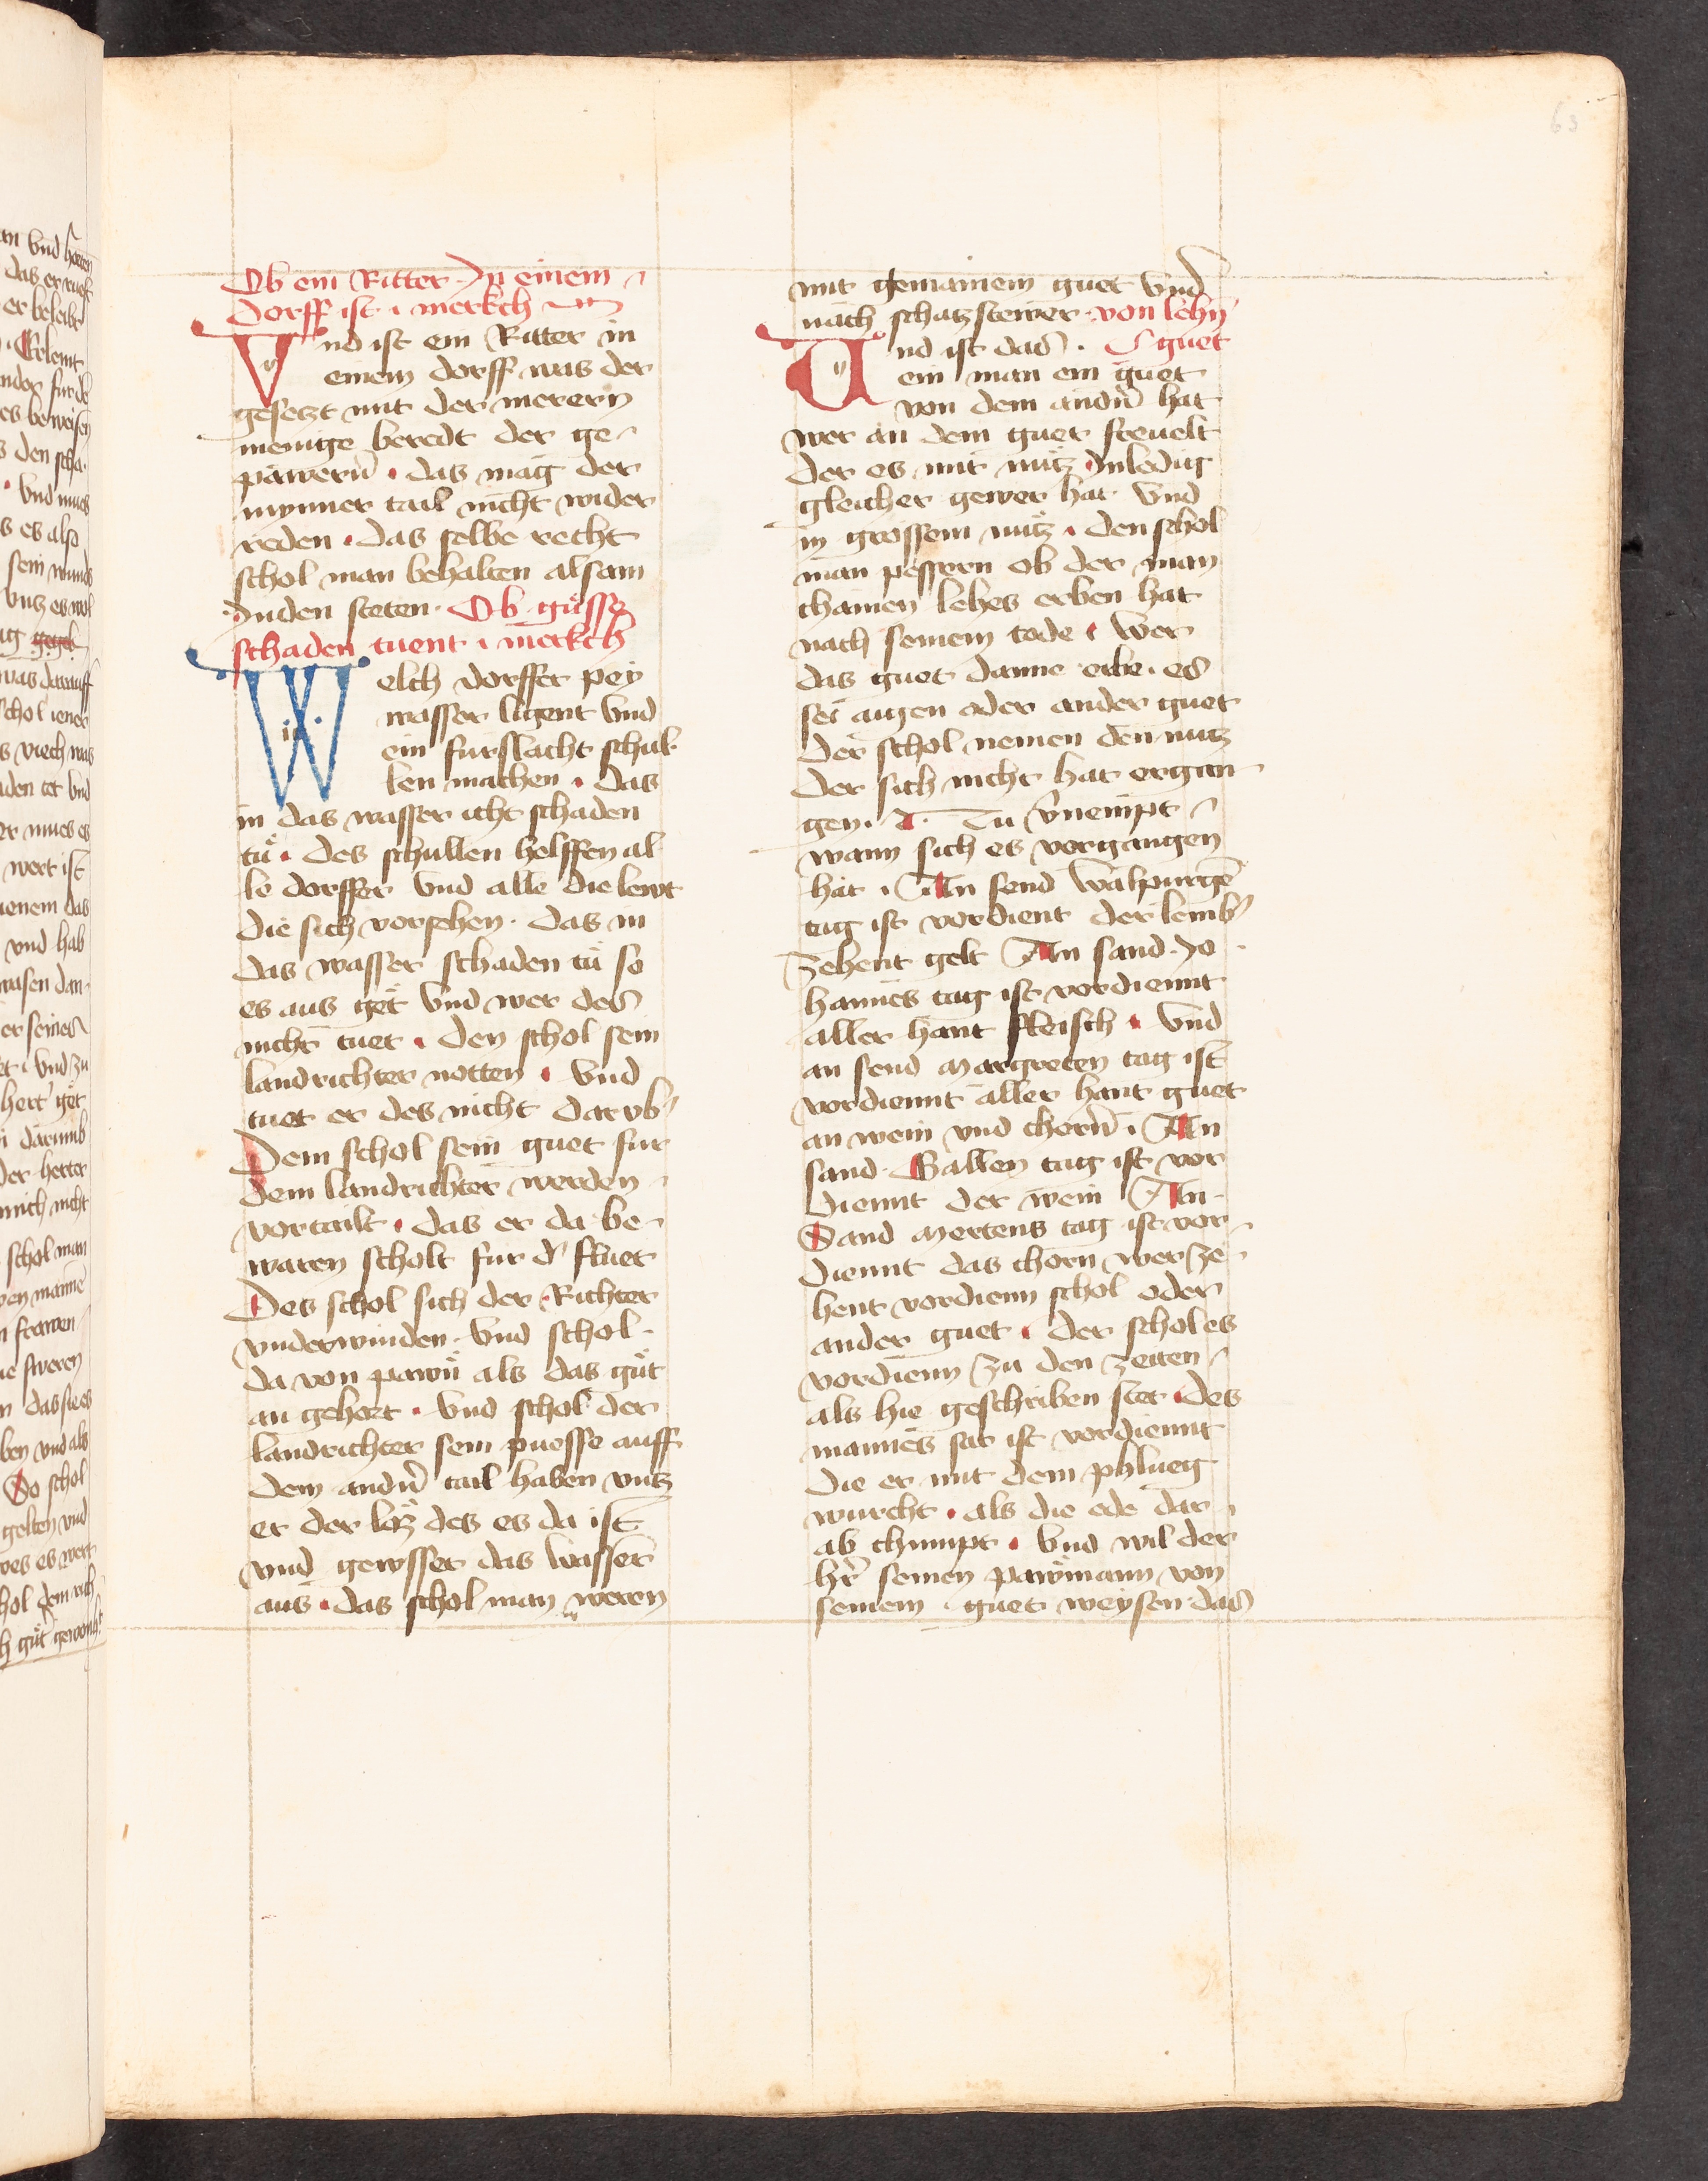 63
Ob ein Ritter Jn einem
dorff ist · merkch
Vnd ist ein Ritter in
einem dorff was der
gesetzt mit der merern
menige beredt der ge
pawern̄ · das mag der
mynner tail nicht wider
reden · das selbe recht
schol man behalten alsam
Jnden steten · Ob güsse
schaden tuent · merkch
Welch dorffer pey
wasser ligent vnd
ein furslacht schul
len machen · das
in das wasser icht schaden
tů · des schullen helffen al
le dorffer vnd alle die lewt
die sich vorsehen · das in
das wasser schaden tů so
es aus get vnd wer des
nicht tuet · den schol sein
landrichter notten · vnd
tuet er des nicht darvb̄
Dem schol sein guet fur
dem landrichter werden
vortailt · das er da be
waren scholt fur d' fluet
Des schol sich der Richter
vnderwinden · vnd schol
da von pawn̄ als das gůt
an gehort · vnd schol der
landrichter sein puesse auff
dem andn̄ tail haben vntz
er der loͤz des es da ist
vnd gewsser das wasser
aus · das schol man weren
mit gemainem guet vnd
nach schatzstewer · von lehn̄
guet
Vnd ist das ·
ein man ein guet
von dem andn̄ hat
wer an dem guet freuelt
der es mit nutz Jnledig
gleicher gewer hat vnd
in grossem nutz · den schol
man pessern ob der man
chainen lehes erben hat
nach seinem tode · wer
das guet danne erbe · es
sei aigen oder ander guet
der schol nemen den nutz
der sich nicht hat ergan
gen · Tu v̄nempt
wann sich es vorgangen
hat · An send walpurgē
tag ist vordient der lemb̄
zehent gelt An sand Jo
hannes tag ist vordiennt
aller hant fleisch · vnd
an send Margreten tag ist
vordiennt aller hant guet
an wein vnd chorn̄ · An
sand Gallen tag ist vor
diennt der wein An
Sand Mertens tag ist vor
diennt das chorn wer ze
hent vordienn schol oder
ander guet · der schol es
vordienn zu den zeiten
als hie geschriben stet · des
mannes sat ist vordiennt
die er mit dem phlueg
wurcht · als die ede dar
ab chumpt · vnd wil der
hr̄ seinen pawmann von
seinem guet weysen das